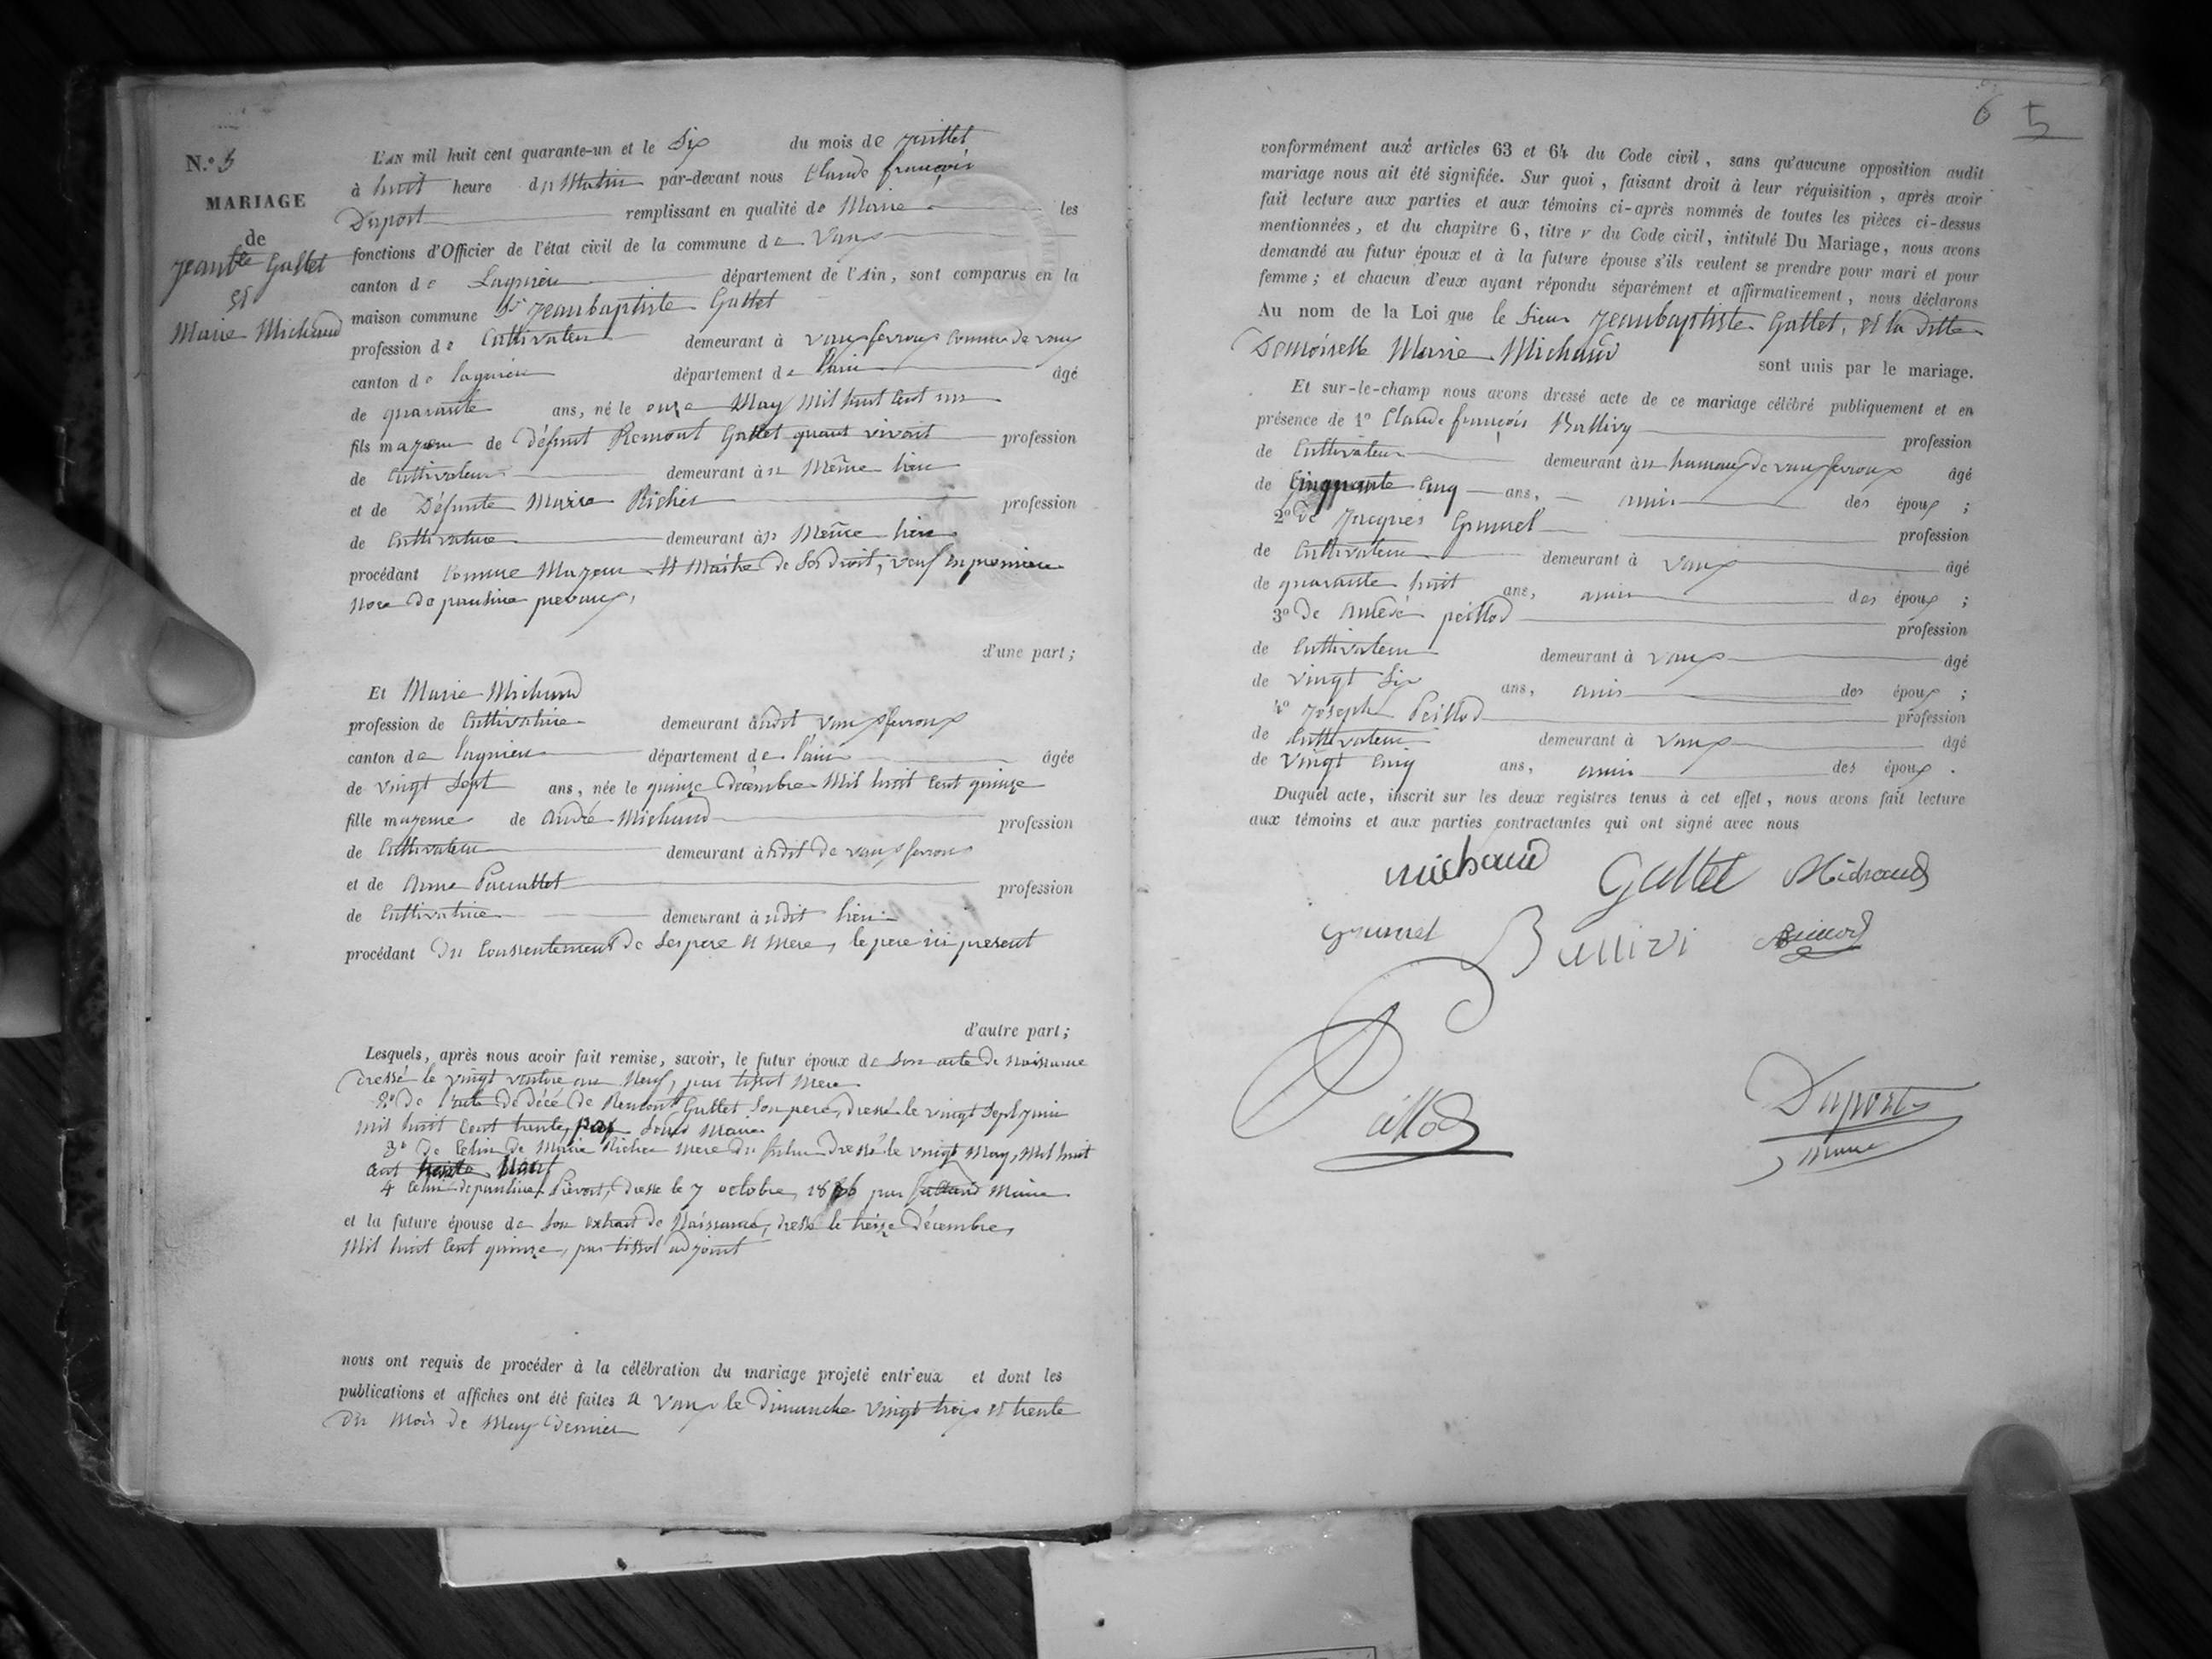 N.º 5
MARIAGE
de
Jean Bte Gallet
et
Marie Michaud
L'AN mil huit cent quarante-un et le Six du mois de Juillet
à huit heure du Matin par-devant nous Claude françois
Duport remplissant en qualité de Maire les
fonctions d'Officier de l'état civil de la commune de Vaux
canton de Lagnieu département de l'Ain, sont comparus en la
maison commune Sr Jeanbaptiste Gallet
profession de Cultivateur demeurant à vauxfevroux Commune de vaux
canton de lagnieu département de l'ain âgé
de quarante ans, né le onze May Mil huit Cent un
fils majeur de défunt Remont Gallet quant vivant profession
de Cultivateur demeurant au Même lieu
et de Défunte Marie Richer profession
de Cultivatrice demeurant au Même lieu
procédant Comme Majeur et Maitre de Ses droit, veuf en première
Noce de pauline prevaux,
d'une part;
Et Marie Michaud
profession de Cultivatrice demeurant audit vauxfevroux
canton de lagnieu département de l'ain âgée
de vingt Sept ans, née le quinze Décembre Mil huit Cent quinze
fille majeure de André Michaud profession
de Cultivateur demeurant audit de vauxfevroux
et de Anne profession
de Cultivatrice demeurant audit lieu
procédant Du Consentement de Ses pere et mere, le pere ici présent
d'autre part;
Lesquels, après nous avoir fait remise, savoir, le futur époux de Son acte de naissance
Dressé le vingt Neuf, par tissot Mere
2º De l'acte De décé de Remont Gallet Son pere, dressé le vingt Sept juin
Mil huit Cent trente, par Maire
3º De Celui de Marie Richer Mere du futur Dressé le vingt May, Mil huit
Cent trente
4 Celui de pauline Prevost, Dressé le 7 octobre, 1836 par Maire
et la future épouse de Son extrait de Naissance, dressé le treize Décembre,
Mil huit Cent quinze, par tissot adjoint
nous ont requis de procéder à la célébration du mariage projeté entr'eux et dont les
publications et affiches ont été faites a Vaux le Dimanche vingt trois et trente
Du Mois de May Dernier
6 5
conformément aux articles 63 et 64 du Code civil, sans qu'aucune opposition audit
mariage nous ait été signifiée. Sur quoi, faisant droit à leur réquisition, après avoir
fait lecture aux parties et aux témoins ci-après nommés de toutes les pièces ci-dessus
mentionnées, et du chapitre 6, titre v du Code civil, intitulé Du Mariage, nous avons
demandé au futur époux et à la future épouse s'ils veulent se prendre pour mari et pour
femme; et chacun d'eux ayant répondu séparément et affirmativement, nous déclarons
Au nom de la Loi que le Sieur Jeanbaptiste Gallet, et la ditte
Demoiselle Marie Michaud sont unis par le mariage.
Et sur-le-champ nous avons dressé acte de ce mariage célébré publiquement et en
présence de 1º Claude françois Ballivy profession
de Cultivateur demeurant au hameau de vauxfevroux âgé
de Cinquante Cinq ans, amis des époux;
2º de Jacques Grumel profession
de Cultivateur demeurant à vaux âgé
de quarante huit ans, amis des époux;
3º De peillod profession
de Cultivateur demeurant à vaux âgé
de vingt Six ans, amis des époux;
4º Joseph Peillod profession
de Cultivateur demeurant à vaux âgé
de vingt Cinq ans, amis des époux.
Duquel acte, inscrit sur les deux registres tenus à cet effet, nous avons fait lecture
aux témoins et aux parties contractantes qui ont signé avec nous
michaud Gallet Michaud
grumel Ballivi
Peillod
Duport
maire